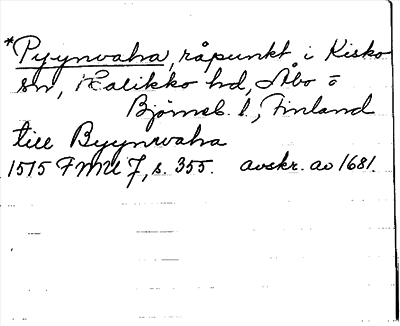 *Pyynvaha, råpunkt i Kisko
sn, Halikko hd, Åbo o
Björneb. l., Finland
till Byynwaha
1515 FMU 7, s. 355. avskr. av 1681.